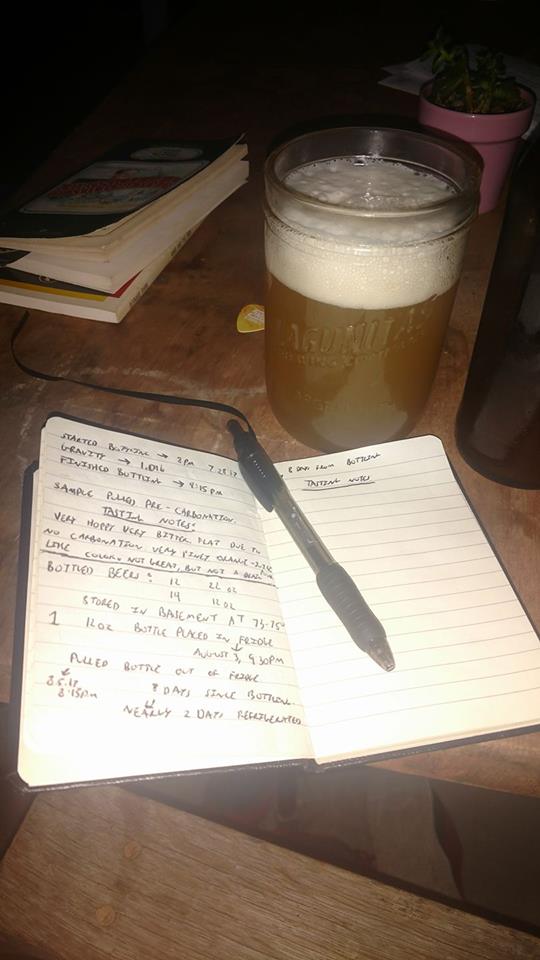 STARTED BOTTLING → 2PM 7.28.17
GRAVITY → 1.016
FINISHED BOTTLING → 4:15PM
SAMPLE PULLED PRE-CARBONATION.
TASTING NOTES:
VERY HOPPY VERY BITTER FLAT DUE TO
NO CARBONATION VERY PINEY ORANGE
LIKE COLOR. NOT GREAT, BUT NOT A
BOTTLED BEERS:
12 22 OZ
14 12 OZ
STORED IN BASEMENT AT 73-75°
1 12 OZ BOTTLE PLACED IN FRIDGE
↓
AUGUST 3, 9:30PM
PULLED BOTTLE OUT OF FRIDGE
↓
8.5.17
8:15PM
8 DAYS SINCE BOTTLING
NEARLY 2 DAYS REFRIGERATED
8 DAYS FROM BOTTLING
TASTING NOTES
LAGUNITAS